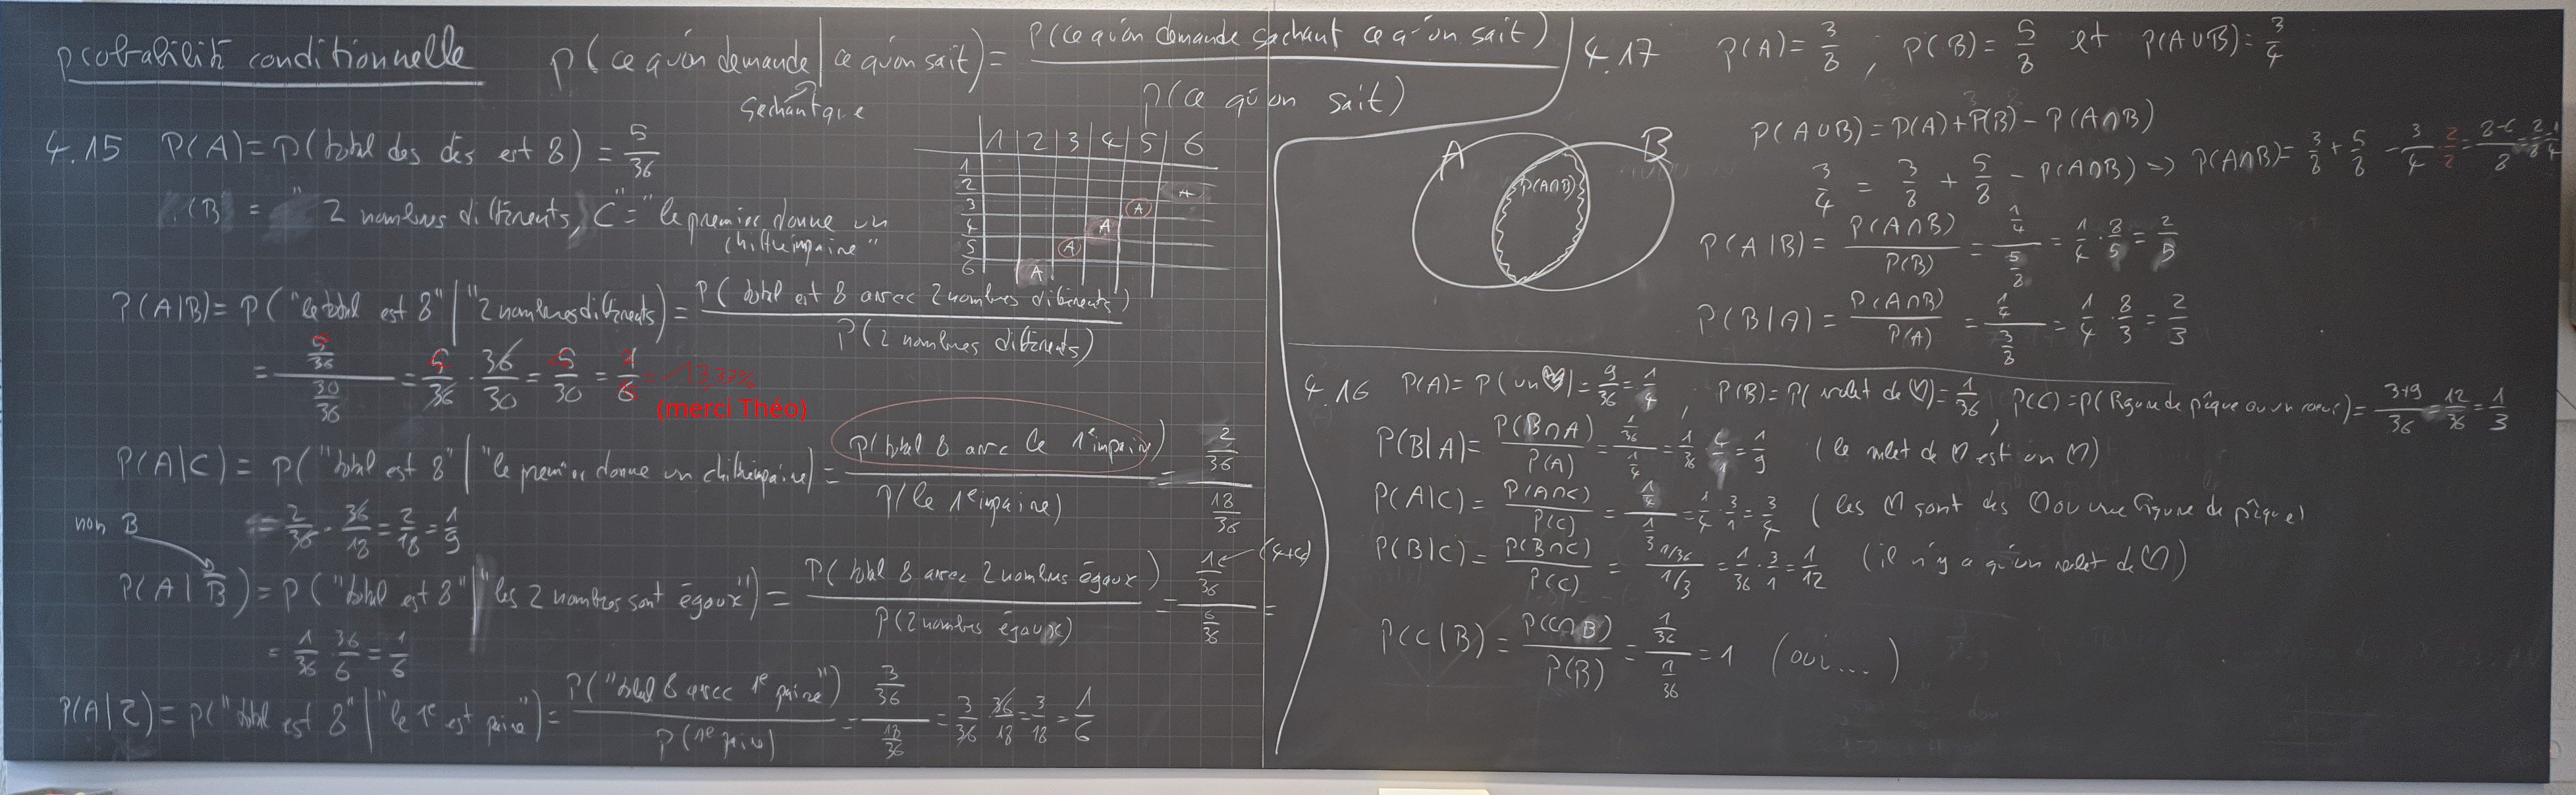 probabilité conditionnelle p(ce qu'on demande | ce qu'on sait) = p(ce qu'on demande sachant ce qu'on sait) / p(ce qu'on sait)
sachant que
4.15 P(A) = P(total des dés est 8) = 5/36
(B) = " 2 nombres différents, C" = "le premier donne un
chiffre impaire"
1 2 3 4 5 6
1
2 A
3 A
4 A
5 A
6 A
P(A|B) = P("le total est 8" | "2 nombres différents) = P(total est 8 avec 2 nombres différents) / P(2 nombres différents)
= 5/36 / 30/36 = 5/36 · 36/30 = 5/30 = 1/6 =
(merci Théo)
P(A|C) = P("total est 8" | "le premier donne un chiffre impaire) = P(total 8 avec le 1e impair) / P(le 1e impaire) = 2/36 / 18/36
= 2/36 · 36/18 = 2/18 = 1/9
non B
P(A|B̄) = P("total est 8" | "les 2 nombres sont égaux") = P(total 8 avec 2 nombres égaux) / P(2 nombres égaux) = 1/36 / 6/36 =
(4+4)
= 1/36 · 36/6 = 1/6
P(A|C̄) = P("total est 8" | "le 1e est paire") = P("total 8 avec 1e paire") / P(1e paire) = 3/36 / 18/36 = 3/36 · 36/18 = 3/18 = 1/6
4.17 P(A) = 3/8 , P(B) = 5/8 et P(A∪B) = 3/4
P(A∪B) = P(A) + P(B) - P(A∩B)
3/4 = 3/8 + 5/8 - P(A∩B) => P(A∩B) = 3/8 + 5/8 - 3/4 · 2/2 = 8-6/8 = 2/8 = 1/4
A B
P(A∩B)
P(A|B) = P(A∩B) / P(B) = 1/4 / 5/8 = 1/4 · 8/5 = 2/5
P(B|A) = P(A∩B) / P(A) = 1/4 / 3/8 = 1/4 · 8/3 = 2/3
4.16 P(A) = P(un ♡) = 9/36 = 1/4 , P(B) = P(valet de ♡) = 1/36 , P(C) = P(figure de pique ou un coeur) = 3+9/36 = 12/36 = 1/3
P(B|A) = P(B∩A) / P(A) = 1/36 / 1/4 = 1/36 · 4/1 = 1/9 (le valet de ♡ est un ♡)
P(A|C) = P(A∩C) / P(C) = 1/4 / 1/3 = 1/4 · 3/1 = 3/4 (les ♡ sont des ♡ ou une figure de pique)
P(B|C) = P(B∩C) / P(C) = 1/36 / 1/3 = 1/36 · 3/1 = 1/12 (il n'y a qu'un valet de ♡)
P(C|B) = P(C∩B) / P(B) = 1/36 / 1/36 = 1 (oui....)